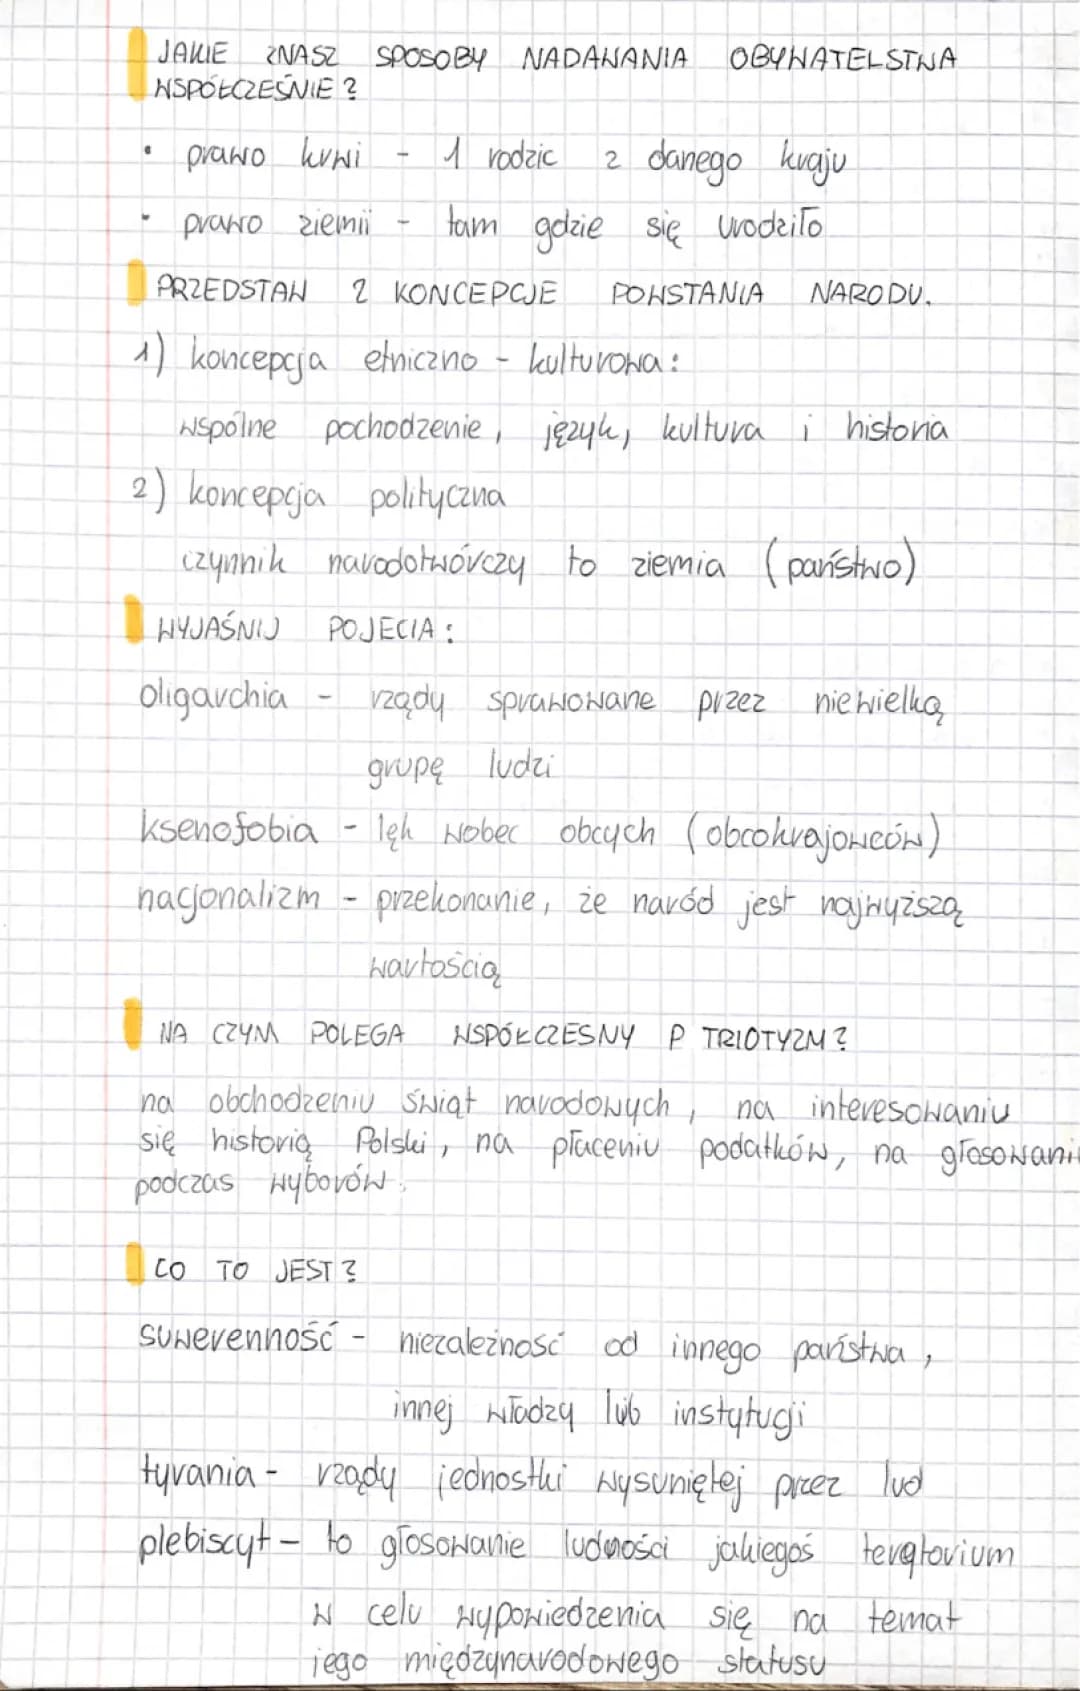 JAKIE ZNASZ SPOSOBY NADAWANIA OBYWATELSTWA
WSPÓŁCZEŚNIE?
• prawo krwi - 1 rodzic z danego kraju
• prawo ziemii - tam gdzie się urodziło
PRZEDSTAW 2 KONCEPCJE POWSTANIA NARODU.
1) koncepcja etniczno - kulturowa:
wspólne pochodzenie, język, kultura i historia
2) koncepcja polityczna
czynnik narodotwórczy to ziemia (państwo)
WYJAŚNIJ POJECIA:
oligarchia - rządy sprawowane przez niewielką
grupę ludzi
ksenofobia - lęk wobec obcych (obcokrajowców)
nacjonalizm - przekonanie, że naród jest najwyższą
wartością
NA CZYM POLEGA WSPÓŁCZESNY P TRIOTYZM?
na obchodzeniu świąt narodowych, na interesowaniu
się historią Polski, na płaceniu podatków, na głosowani
podczas wyborów.
CO TO JEST?
suwerenność - niezależność od innego państwa,
innej władzy lub instytucji
tyrania - rządy jednostki wysuniętej przez lud
plebiscyt - to głosowanie ludności jakiegoś terytorium
w celu wypowiedzenia się na temat
jego międzynarodowego statusu